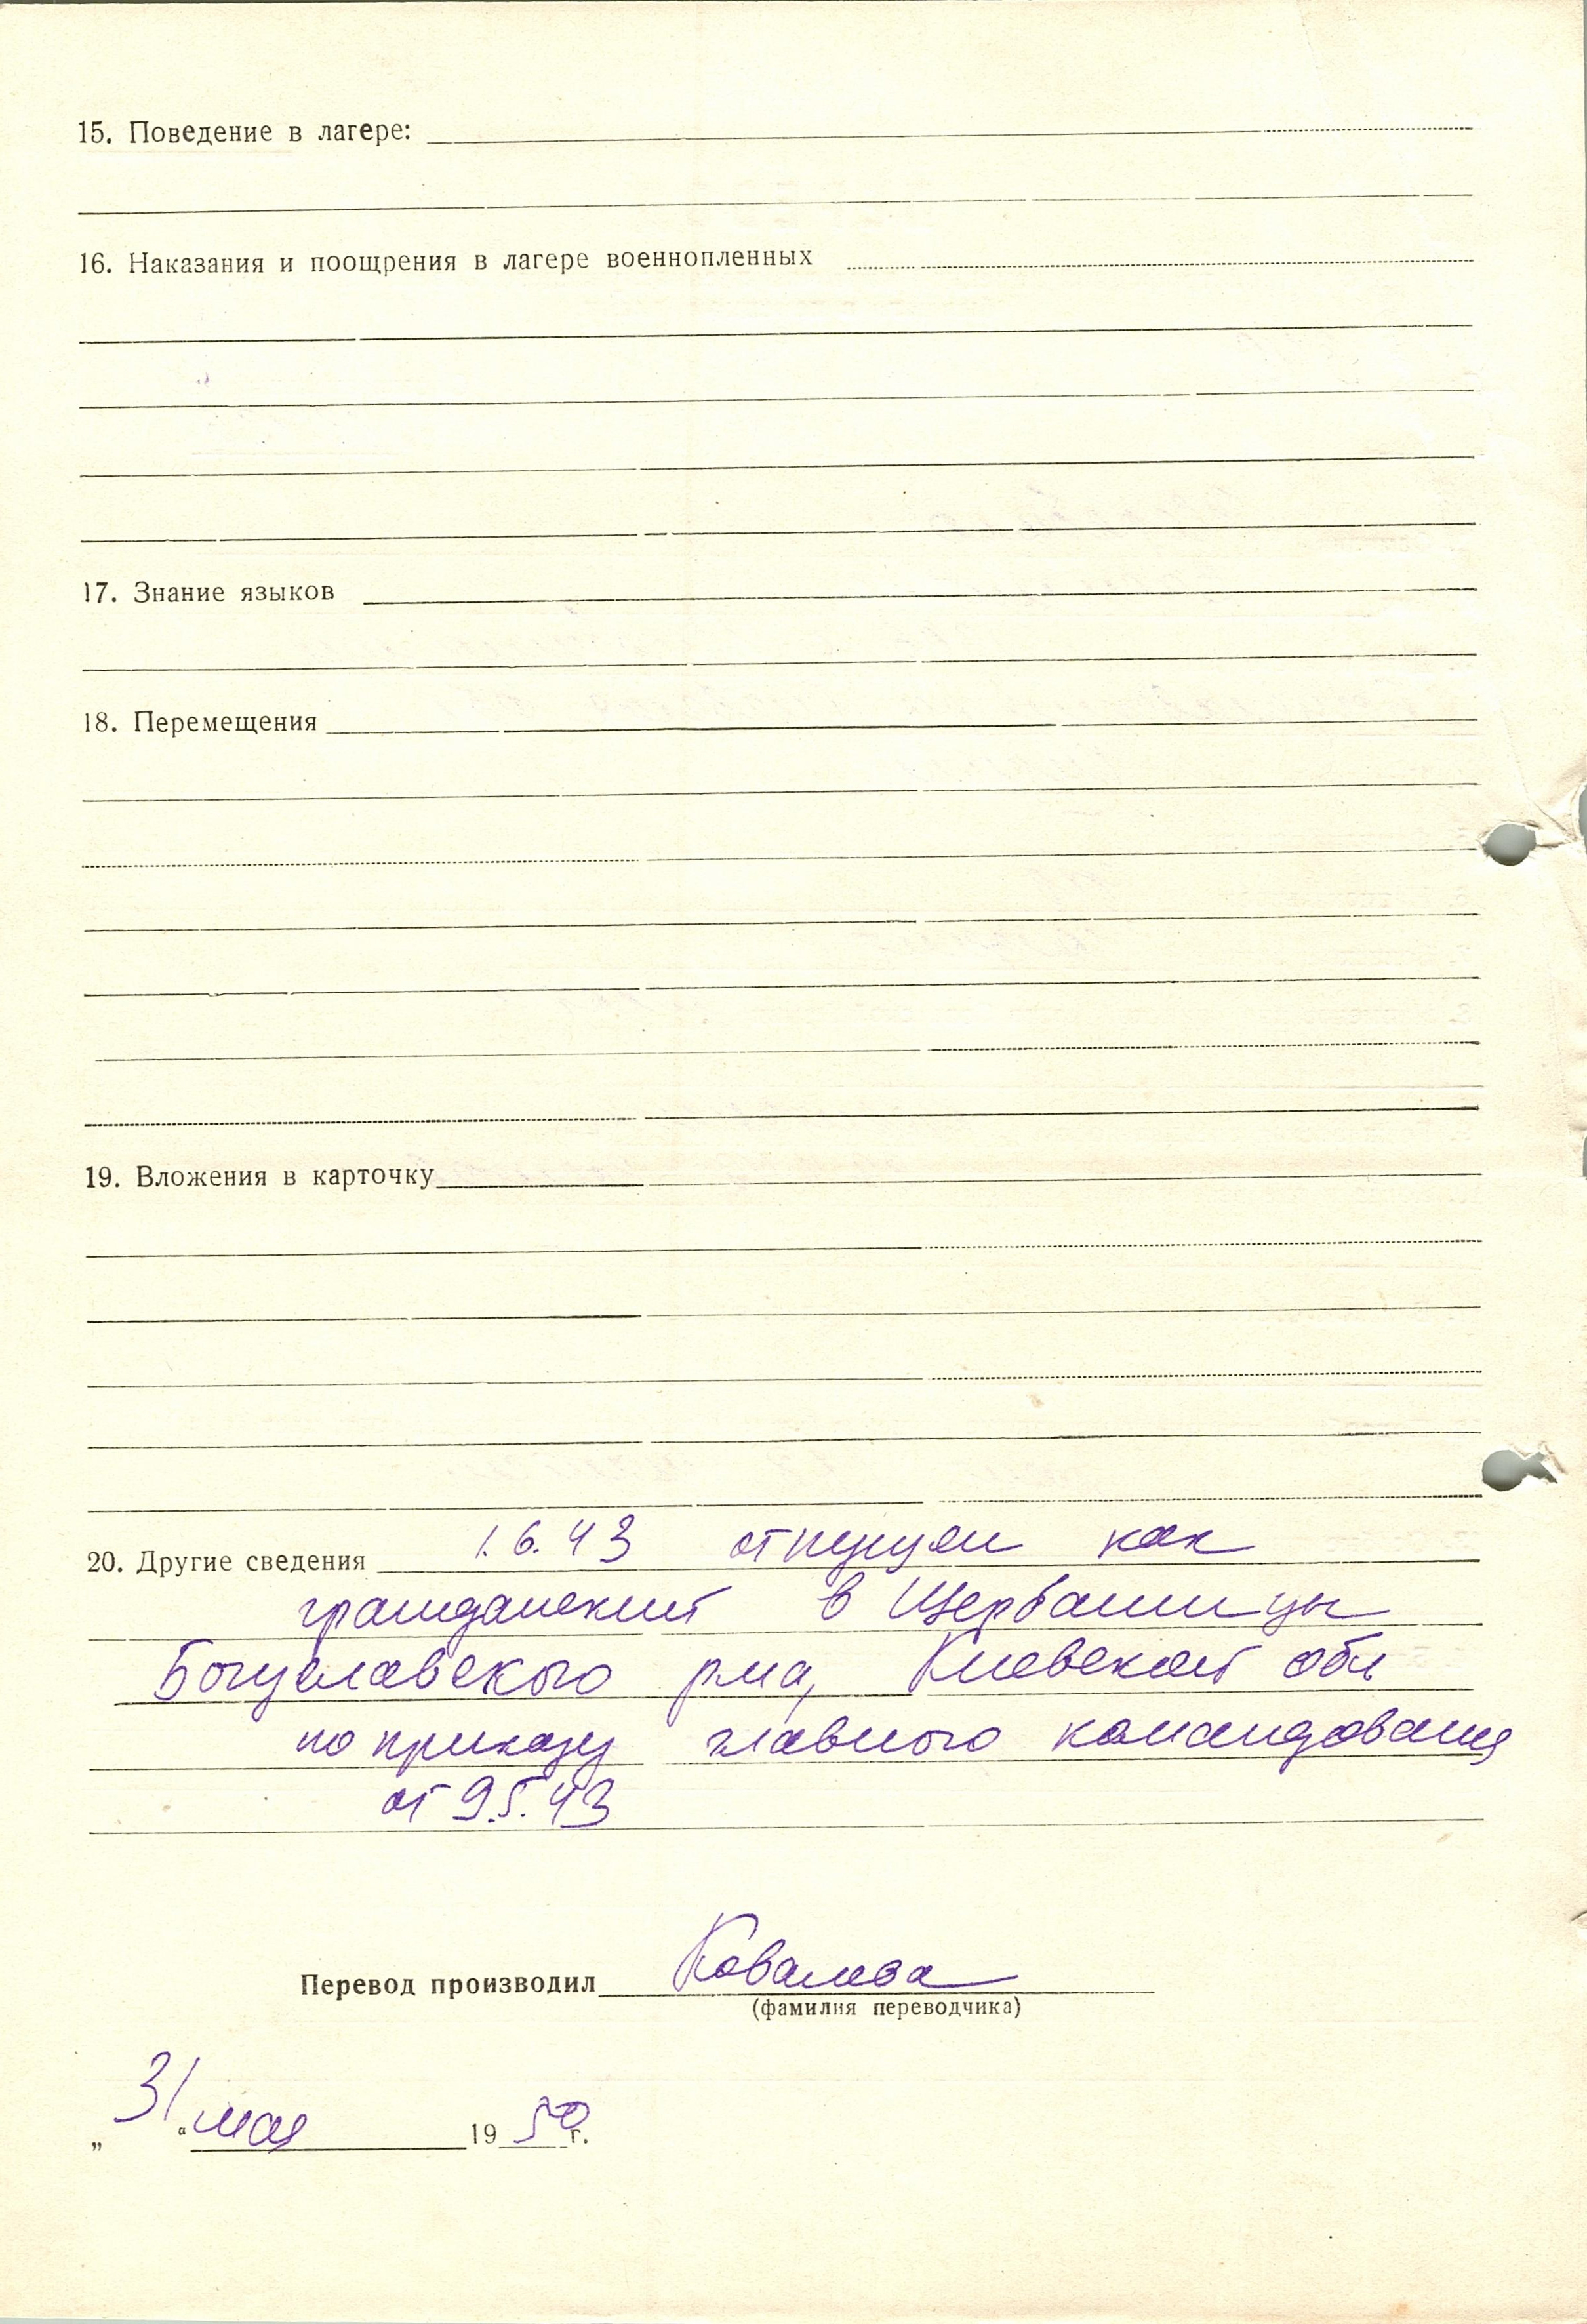 15. Поведение в лагере:
16. Наказания и поощрения в лагере военнопленных
17. Знание языков
18. Перемещения
19. Вложения в карточку
20. Другие сведения 1.6.43 отпущен как
гражданский в Щербашинцы
Богуславского р-на, Киевской обл
по приказу главного командования
от 9.5.43
Перевод производил Ковалева
(фамилия переводчика)
„31“ мая 1950 г.